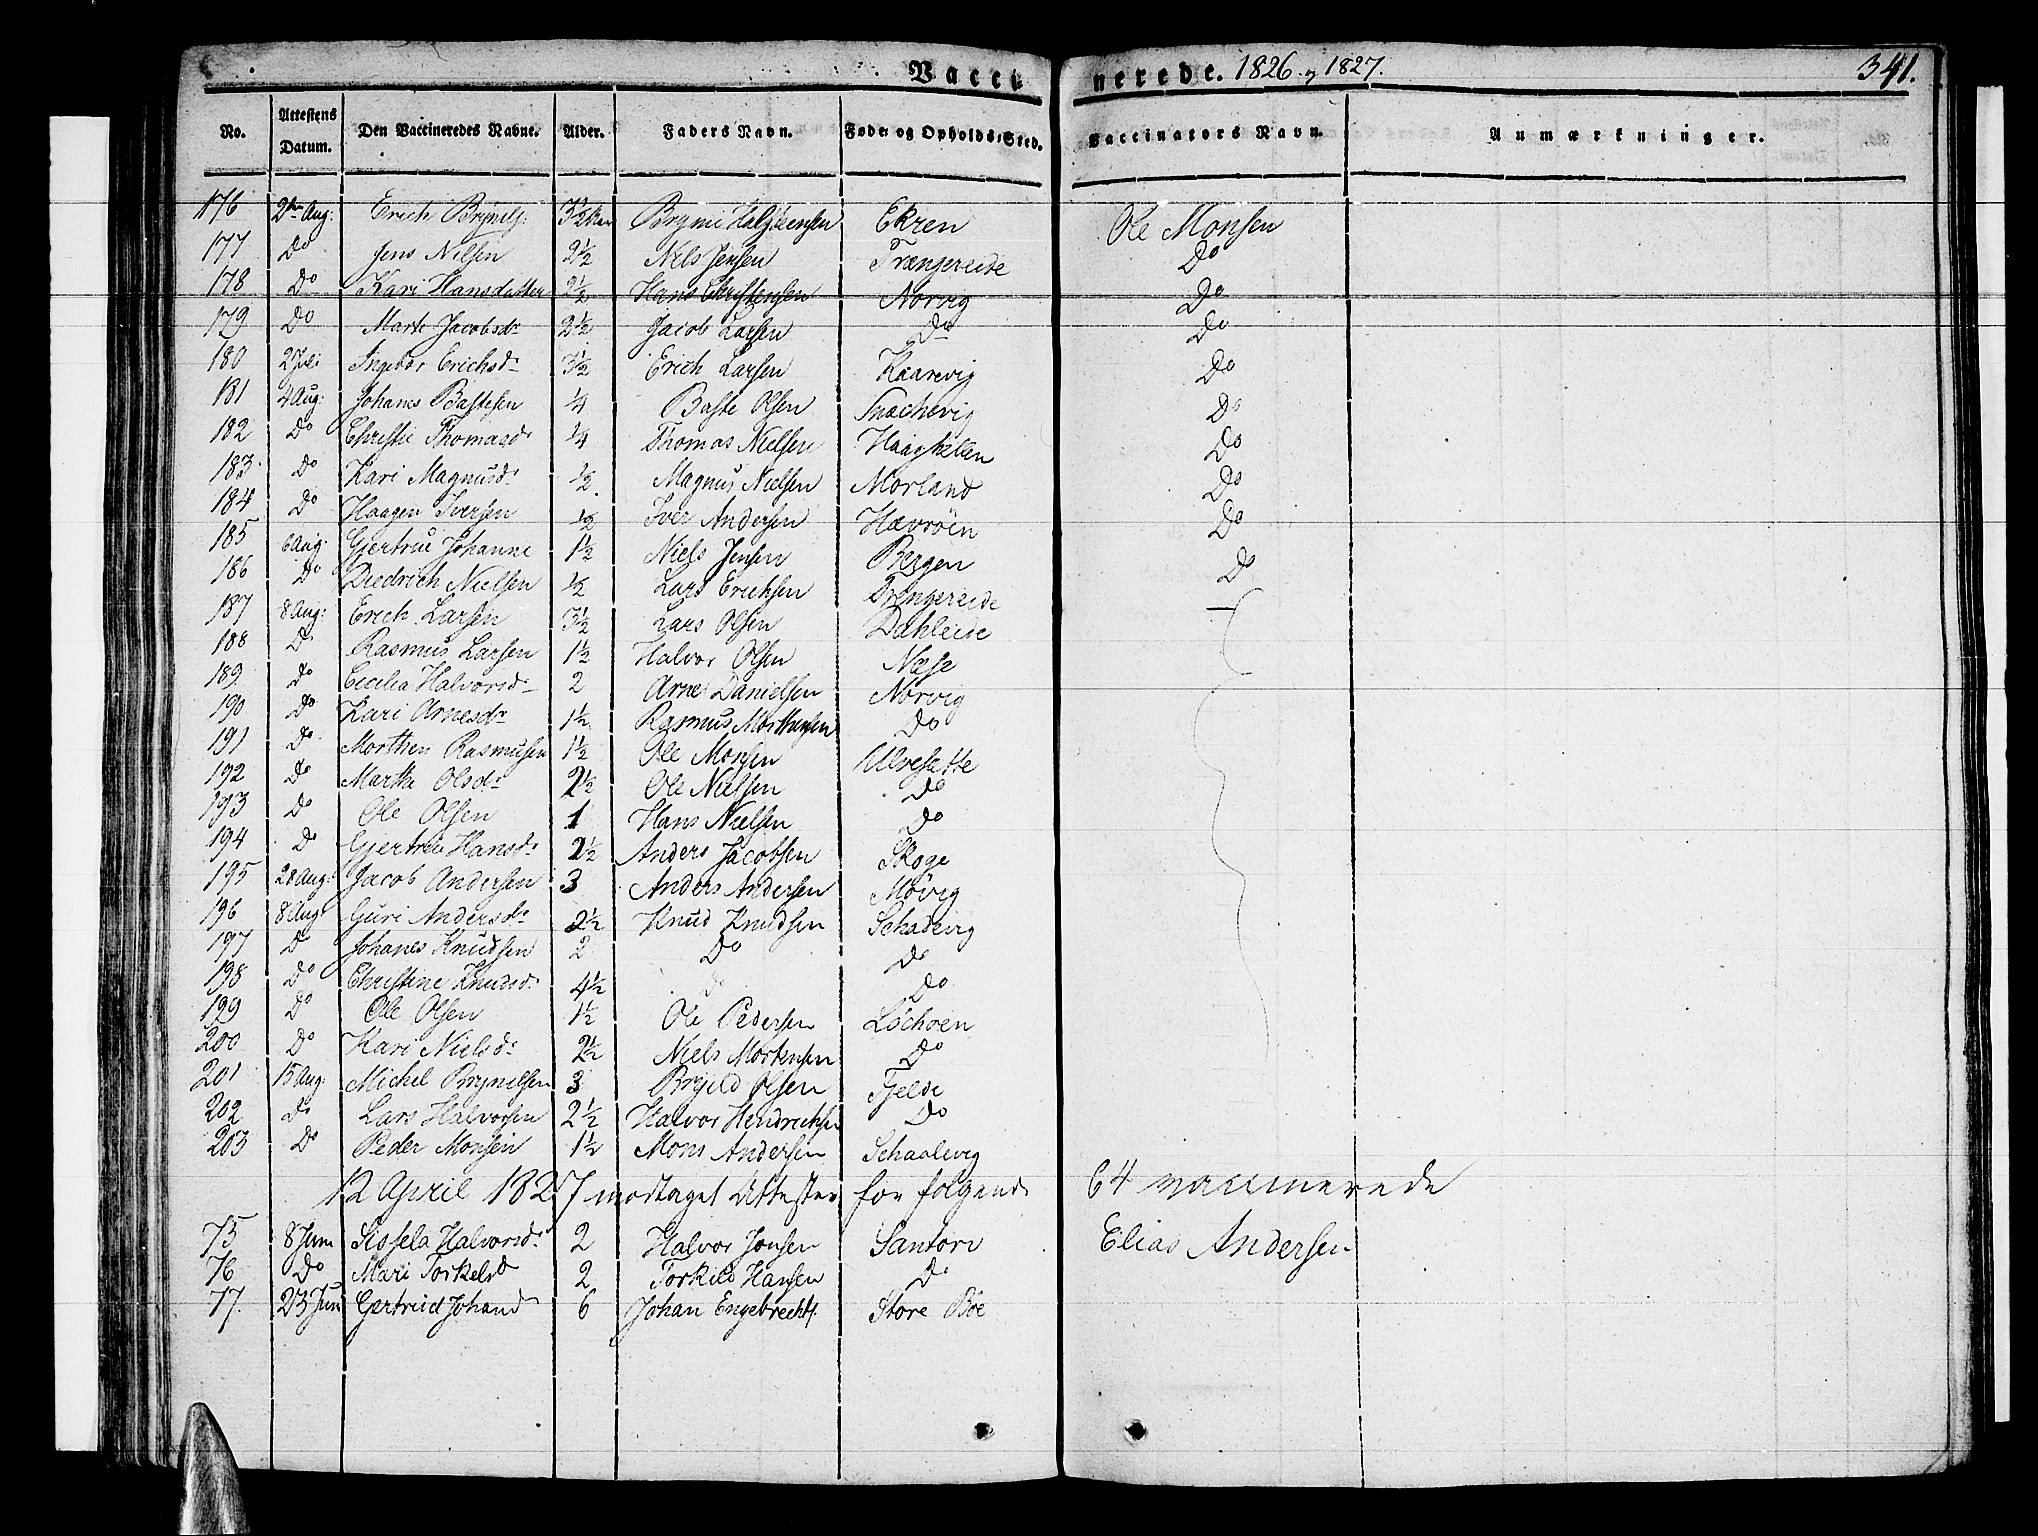 Vaccinerede. 1826 og 1827. 341.
No. Attestens Datum. Den Vaccineredes Navne. Alder. Faders Navn. Føde- og Opholds-Sted. Vaccinators Navn. Anmærkninger.
176 2den Aug: Erich Brynels: 3½ Ekren Ole Monsen
177 Do Jens Nilsen 2½ Nels Jensen Trængereide Do
178 Do Kari Hansdatter 2½ Hans Christensen Norvig Do
179 Do Marte Jacobsdr 2½ Jacob Larsen Do Do
180 2 Juli Ingebor Erichsdr 3½ Erich Larsen Kaarevig Do
181 4 Aug: Johanes Bastesen ¼ Baste Olsen Snachevig Do
182 Do Christie Thomasdr ¼ Thomas Nielsen Do
183 Do Kari Magnusdr ½ Magnus Nielsen Morland Do
184 Do Haagen Iversen ½ Iver Andersen Hævröen Do
185 6 Aug: Gjertrue Johanne 1½ Niels Jensen Bergen Do
186 Do Diedrich Nielsen ½ Lars Erichsen Trengereide
187 8 Aug: Erich Larsen 3½ Lars Olsen Dahleide
188 Do Rasmus Larsen 1½ Halvor Olsen Næse
189 Do Cecilia Halvorsdr 2 Arne Danielsen Norvig
190 Do Kari Arnesdr 1½ Rasmus Morthensen Do
191 Do Morthen Rasmusen 1½ Ole Monsen Ulvesette
192 Do Martha Olsdr 2½ Ole Nielsen Do
193 Do Ole Olsen 1 Hans Nielsen Do
194 Do Gjertrue Hansdr 2½ Anders Jacobsen Skoge
195 28 Aug: Jacob Andersen 3 Anders Andersen Møvig
196 8 Aug: Guri Andersdr 2½ Knud Knudsen Schadevig
197 Do Johanes Knudsen 2 Do Do
198 Do Christine Knudsdr 4½ Do Do
199 Do Ole Olsen 1½ Ole Pedersen Löchoen
200 Do Kari Nielsdr 2½ Niels Mortensen Do
201 15 Aug: Michel Brynelsen 3 Olsen Fjelde
202 Do Lars Halvorsen 2½ Halvor Hendrichsen Do
203 Do Peder Monsen 1½ Mons Andersen Schaalevig
12 April 1827 modtaget Attester for følgende 64 vaccinerede
75 8 Juni Sissela Halvorsdr 2 Halvor Jonsen Santorv Elias Andersen
76 Do Mari Torkelsd 2 Torkild Hansen Do
77. 23 Jun Gertrud Johansd 6 Johan Engebrechts. Store Böe